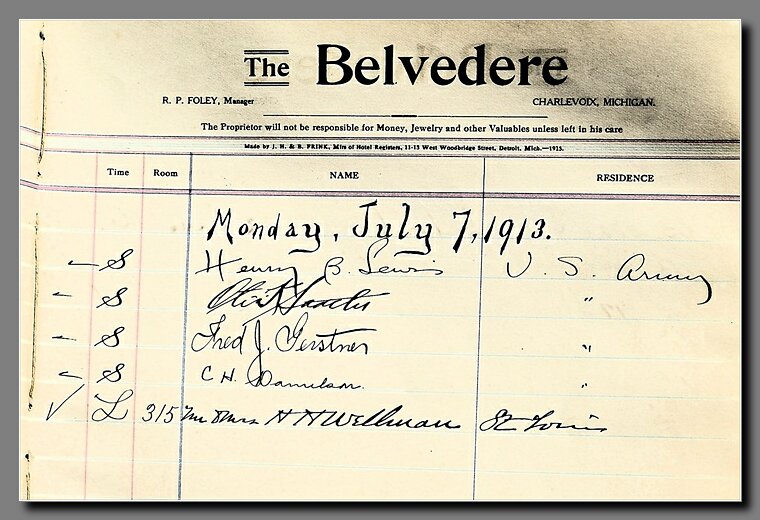 The Belvedere
R. P. FOLEY, Manager CHARLEVOIX, MICHIGAN.
The Proprietor will not be responsible for Money, Jewelry and other Valuables unless left in his care
Made by J. H. & B. FRINK, Mfrs of Hotel Registers, 11-13 West Woodbridge Street, Detroit, Mich.—1913.
Time Room NAME RESIDENCE
Monday, July 7, 1913.
S Henry B. Lewis U. S. Army
S "
S Fred J. Gerstner "
S C. H. Danielson "
L 315 Mr & Mrs H H Wellman St Louis